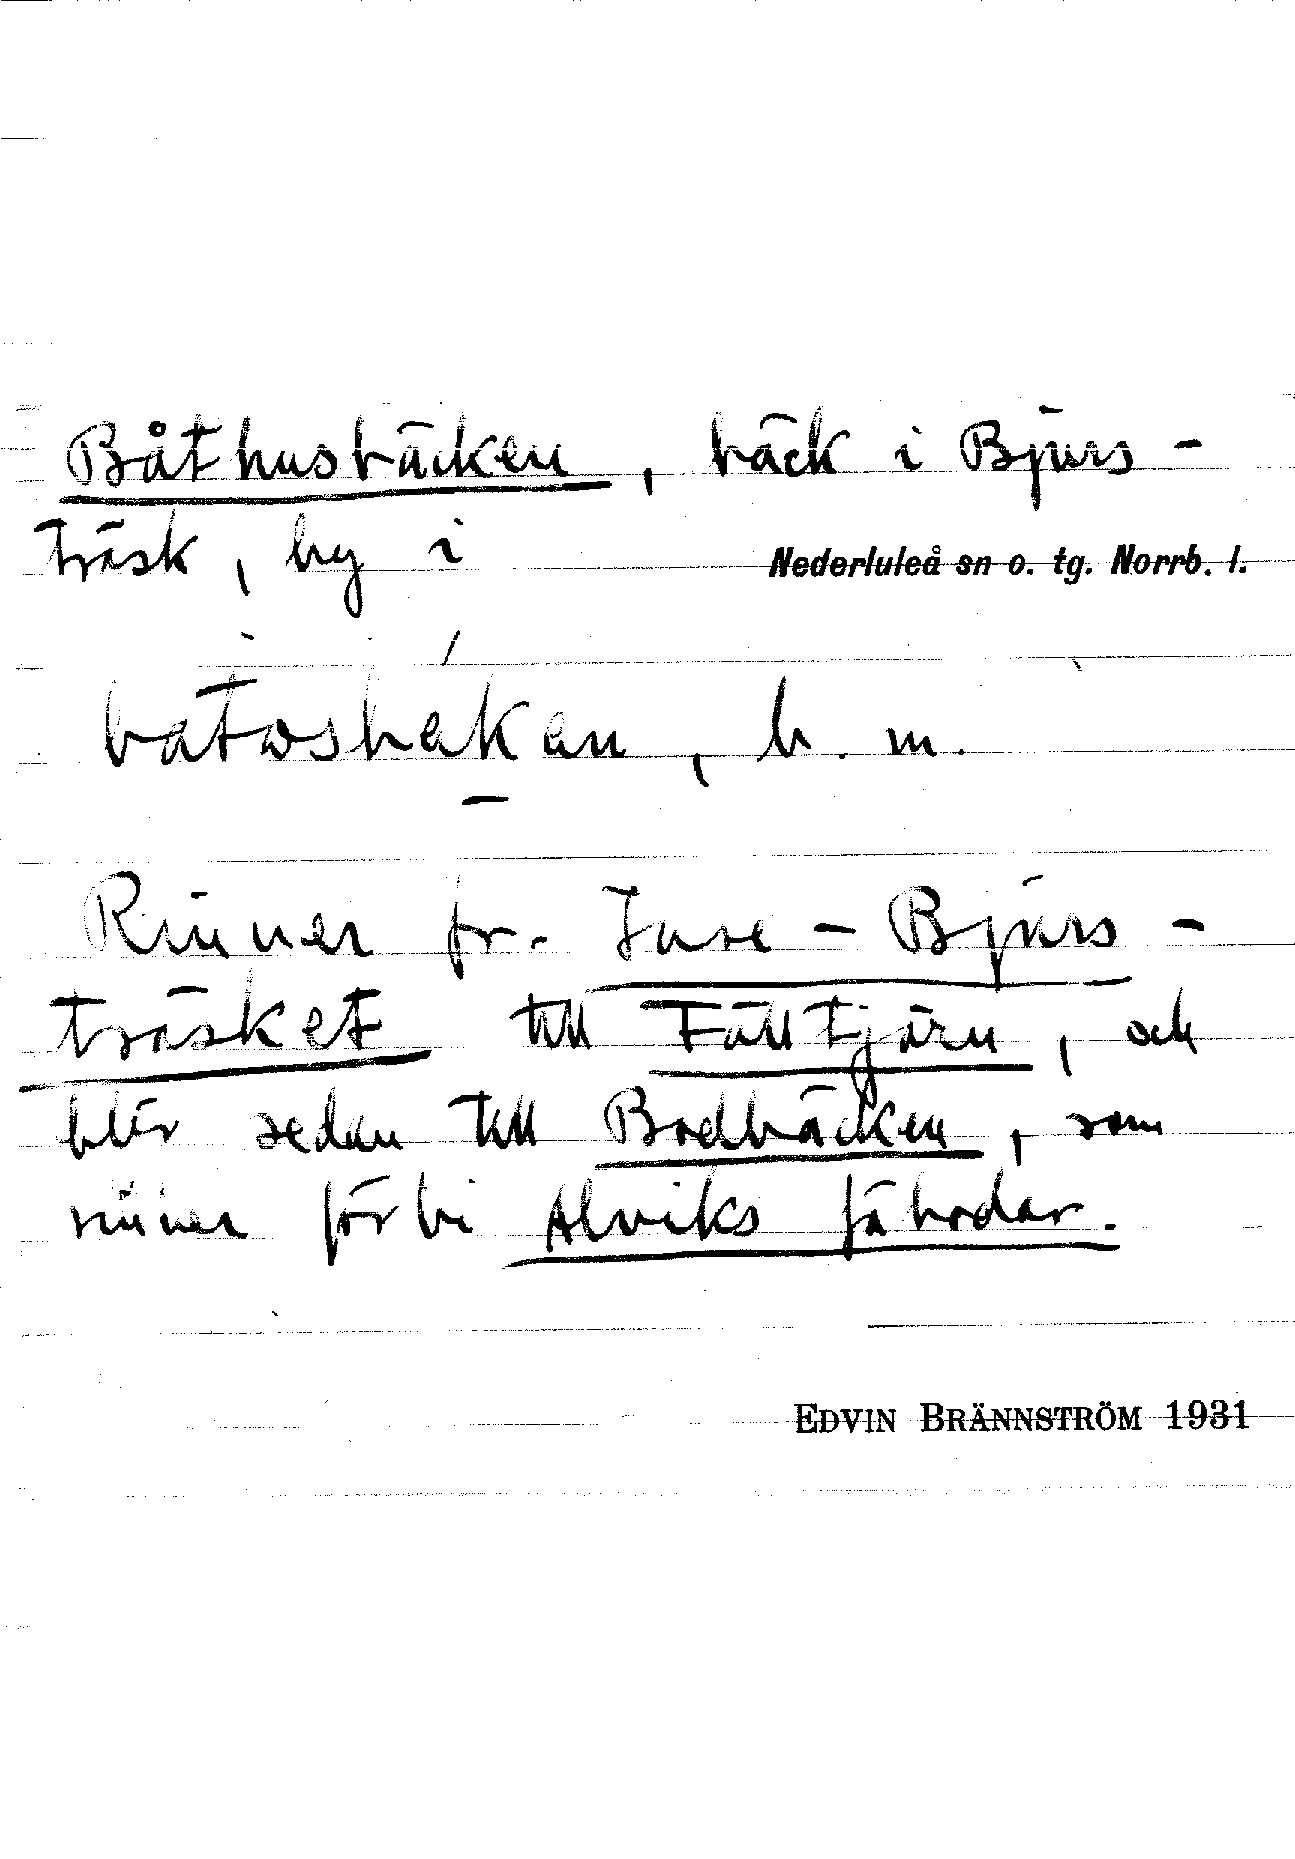 Båthusbäcken, bäck i Bjurs-
träsk, by i Nederluleå sn o. tg. Norrb. l.
b. m.
Rinner fr. Inre-Bjurs-
träsket till Fälltjärn, och
blir sedan till Bodbäcken, som
rinner förbi Alviks fäbodar.
EDVIN BRÄNNSTRÖM 1931